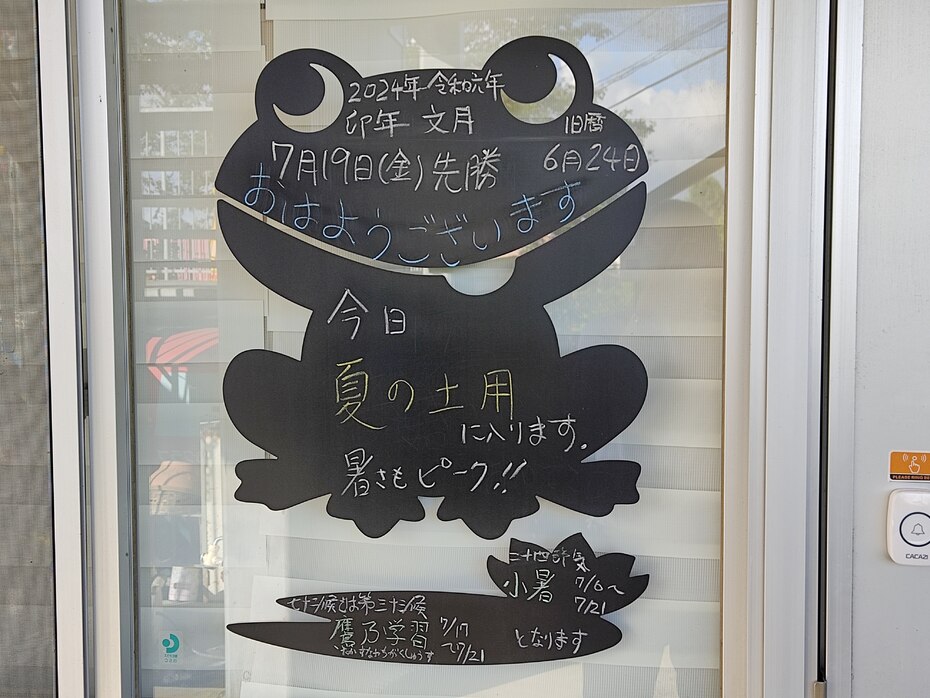 2024年 令和六年
卯年 文月
旧暦
7月19日(金)先勝
6月24日
おはようございます
今日
夏の土用
に入ります。
暑さもピーク!!
二十四節気
小暑 7/6〜
7/21
七十二候では第三十三候
鷹乃学習 7/17
〜7/21
たかすなわちがくしゅうす
となります
PLEASE RING
CACAZI